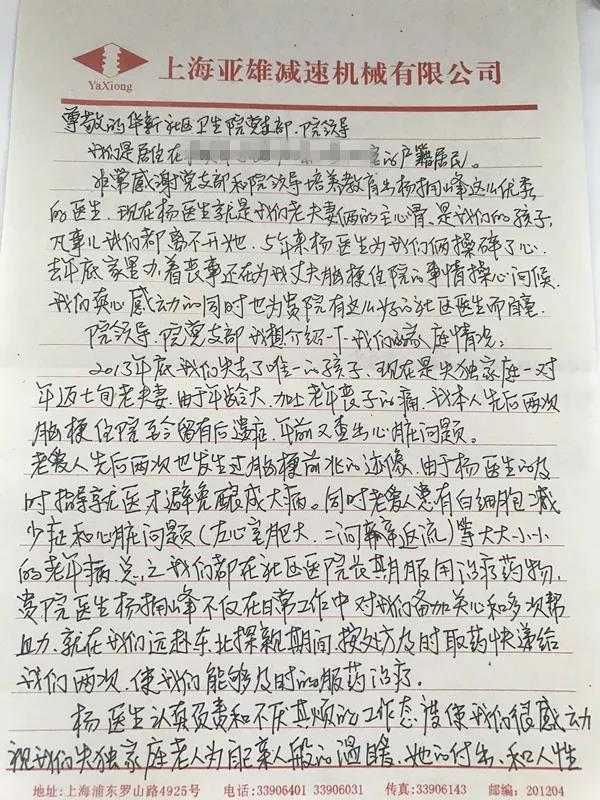 YaXiong
上海亚雄减速机械有限公司
尊敬的华新社区卫生院党支部、院领导
我们是居住在 的户籍居民。
非常感谢党支部和院领导培养教育出杨拥峰这么优秀
的医生、现在杨医生就是我们老夫妻俩的主心骨、是我们的孩子,
凡事儿我们都离不开她、5年来杨医生为我们俩操碎了心、
去年底家里办着丧事还在为我丈夫脑梗住院的事情操心问候、
我们衷心感动的同时也为贵院有这么好的社区医生而自豪、
院领导、院党支部我想介绍一下我们的家庭情况:
2013年底我们失去了唯一的孩子、现在是失独家庭一对
年迈七旬老夫妻、由于年龄大、加上老年丧子的痛、我本人先后两次
脑梗住院至今留有后遗症、年前又查出心脏问题。
老爱人先后两次也发生过脑梗前兆的迹像、由于杨医生的及
时指导就医才避免酿成大病。同时老爱人患有白细胞减
少症和心脏问题(左心室肥大、二间瓣返流)等大大小小
的老年病总之我们都在社区医院长期服用治疗药物,
贵院医生杨拥峰不仅在日常工作中对我们备加关心和多次帮
助、就在我们远赴东北探亲期间、按处方及时取药快递给
我们两次、使我们能够及时的服药治疗。
杨医生认真负责和不厌其烦的工作态度使我们很感动
视我们失独家庭老人为自己亲人般的温暖、她的付出、和人性
地址:上海浦东罗山路4925号 电话:33906401 33906031 传真:33906143 邮编:201204